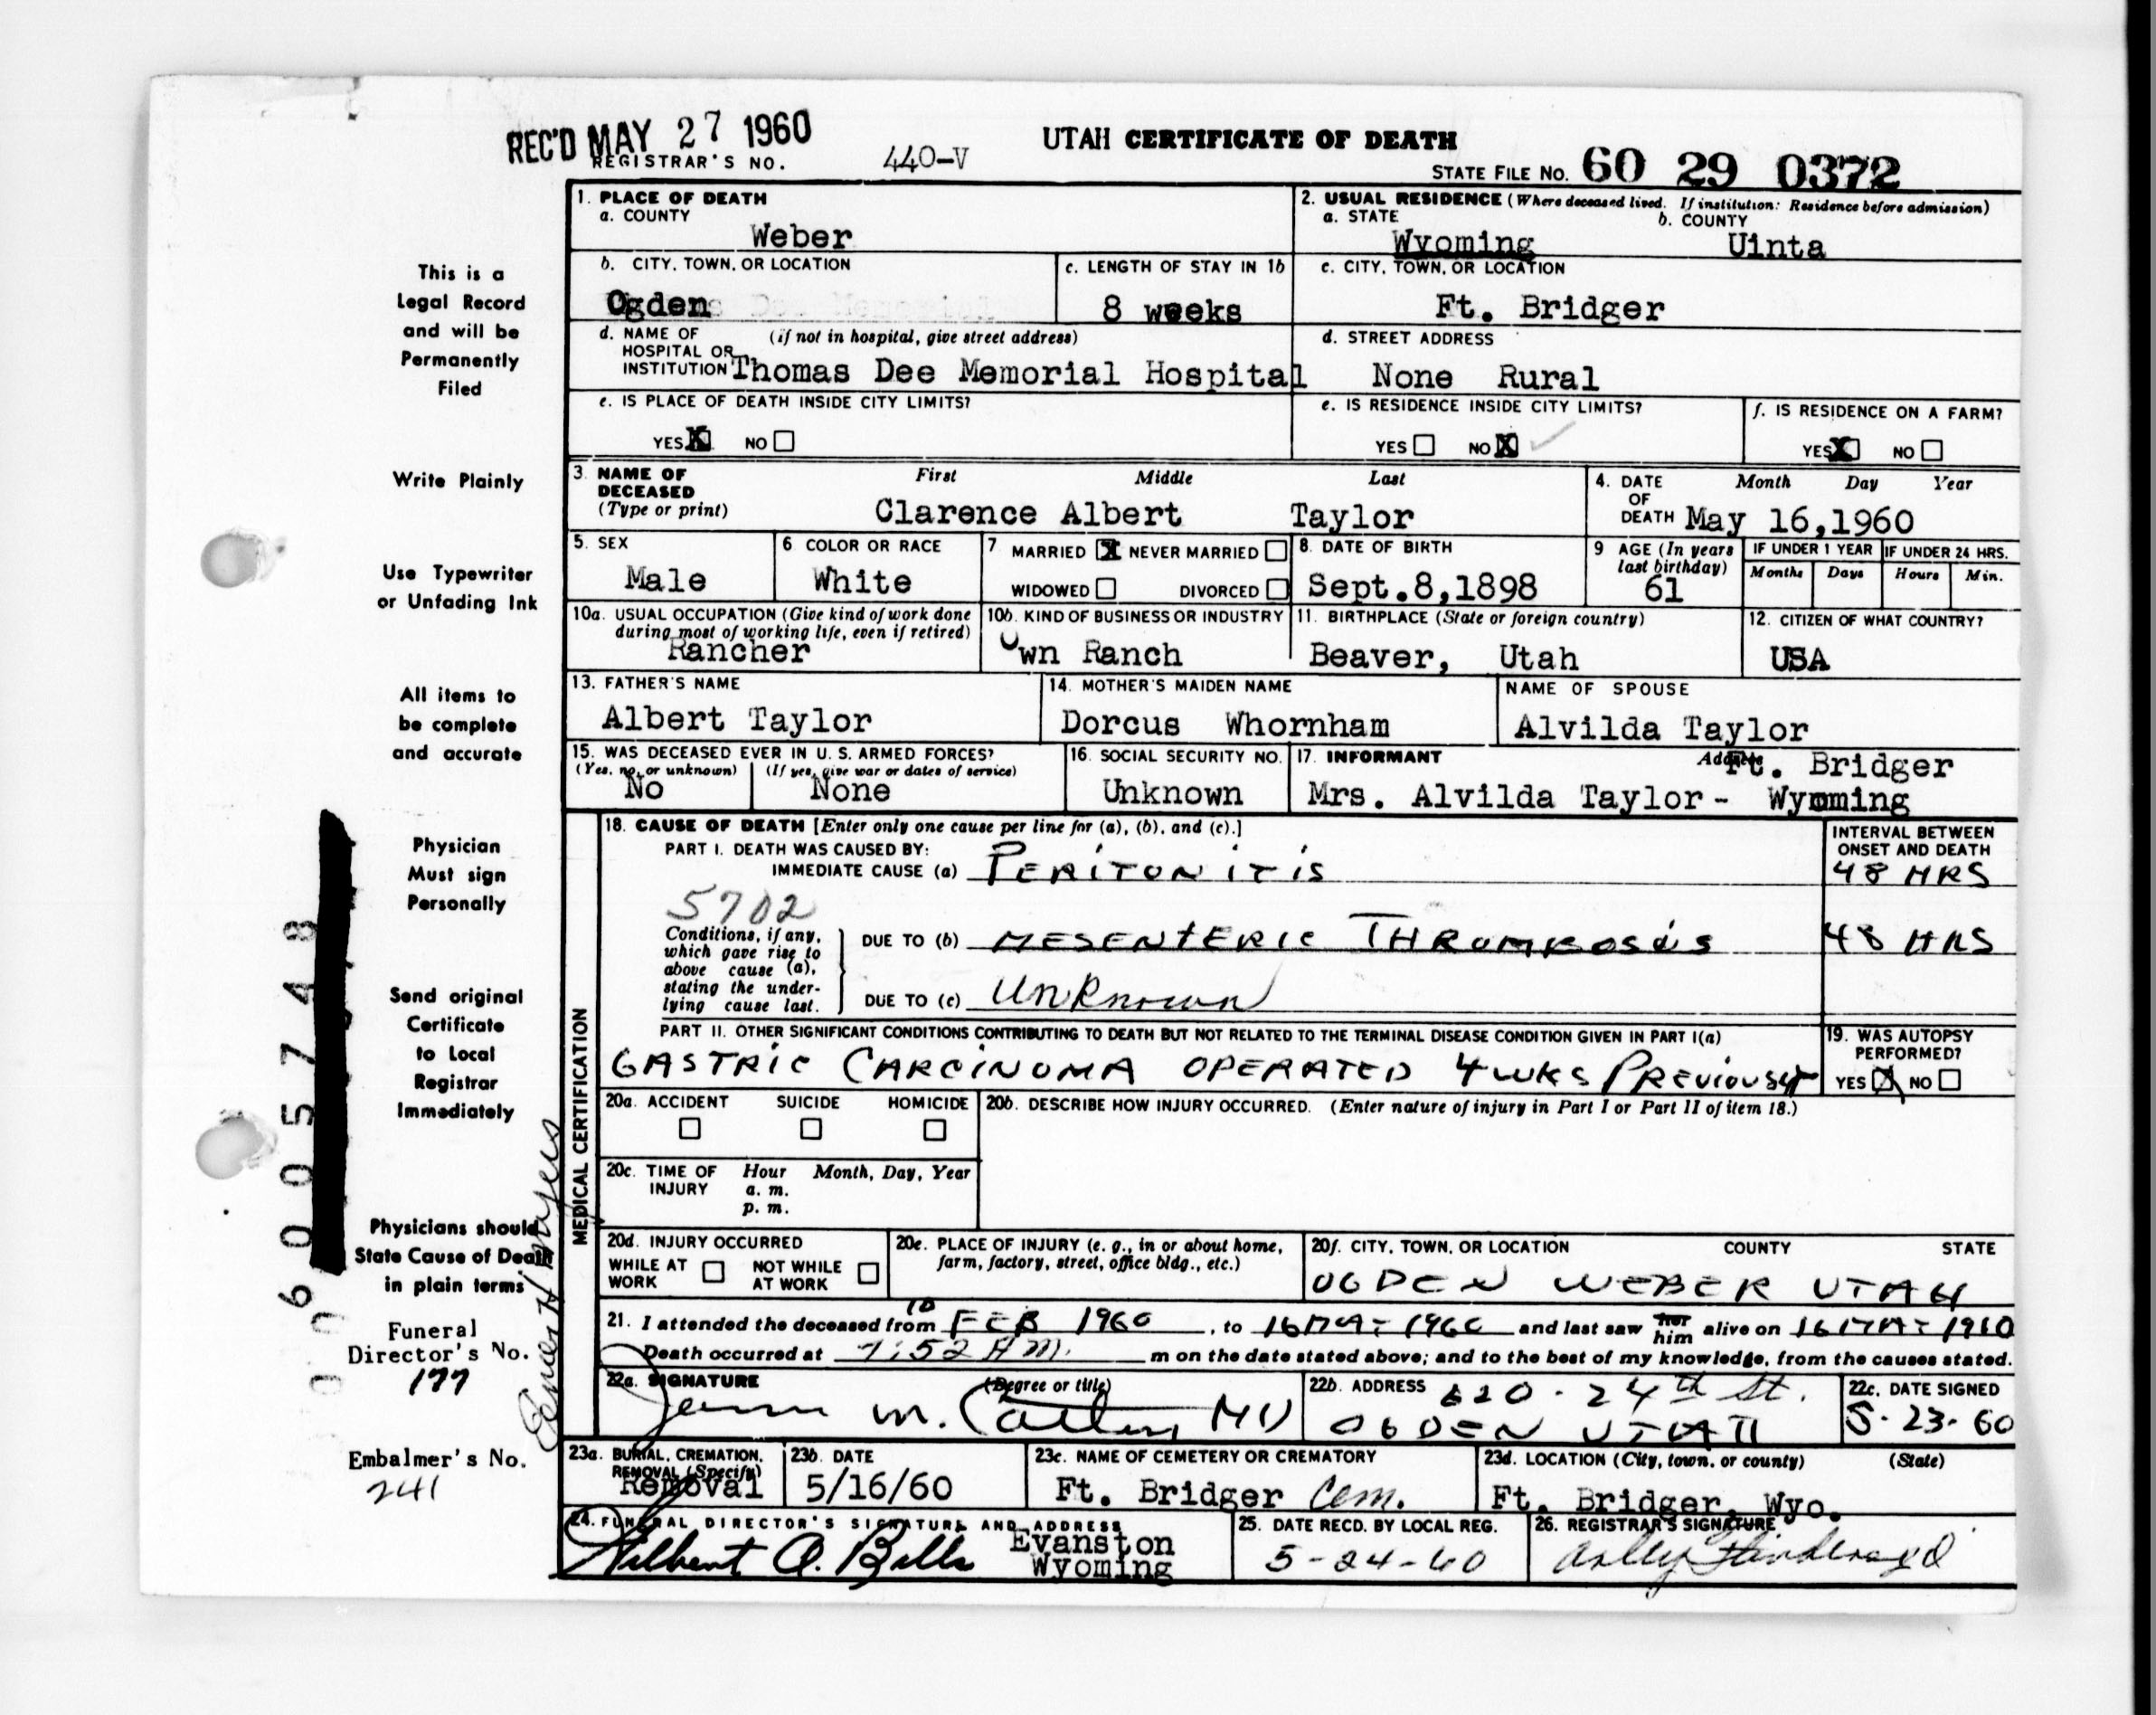 REC'D MAY 27 1960
REGISTRAR'S NO. 440-V
UTAH CERTIFICATE OF DEATH
STATE FILE NO. 60 29 0372
This is a
Legal Record
and will be
Permanently
Filed
Write Plainly
Use Typewriter
or Unfading Ink
All items to
be complete
and accurate
Physician
Must sign
Personally
Send original
Certificate
to Local
Registrar
Immediately
Physicians should
State Cause of Death
in plain terms
Funeral
Director's No.
177
Embalmer's No.
241
6005748
1. PLACE OF DEATH
a. COUNTY
Weber
2. USUAL RESIDENCE (Where deceased lived. If institution: Residence before admission)
a. STATE b. COUNTY
Wyoming Uinta
b. CITY, TOWN, OR LOCATION
Ogden
c. LENGTH OF STAY IN 1b
8 weeks
c. CITY, TOWN, OR LOCATION
Ft. Bridger
d. NAME OF (if not in hospital, give street address)
HOSPITAL OR
INSTITUTION Thomas Dee Memorial Hospital
d. STREET ADDRESS
None Rural
e. IS PLACE OF DEATH INSIDE CITY LIMITS?
YES X NO
e. IS RESIDENCE INSIDE CITY LIMITS?
YES NO X
f. IS RESIDENCE ON A FARM?
YES X NO
3. NAME OF First Middle Last
DECEASED
(Type or print) Clarence Albert Taylor
4. DATE Month Day Year
OF
DEATH May 16,1960
5. SEX
Male
6 COLOR OR RACE
White
7 MARRIED X NEVER MARRIED
WIDOWED DIVORCED
8. DATE OF BIRTH
Sept.8,1898
9 AGE (In years
last birthday)
61
IF UNDER 1 YEAR IF UNDER 24 HRS.
Months Days Hours Min.
10a. USUAL OCCUPATION (Give kind of work done
during most of working life, even if retired)
Rancher
10b. KIND OF BUSINESS OR INDUSTRY
Own Ranch
11. BIRTHPLACE (State or foreign country)
Beaver, Utah
12. CITIZEN OF WHAT COUNTRY?
USA
13. FATHER'S NAME
Albert Taylor
14. MOTHER'S MAIDEN NAME
Dorcus Whornham
NAME OF SPOUSE
Alvilda Taylor
15. WAS DECEASED EVER IN U. S. ARMED FORCES?
(Yes, no, or unknown) (If yes, give war or dates of service)
No None
16. SOCIAL SECURITY NO.
Unknown
17. INFORMANT Address Ft. Bridger
Mrs. Alvilda Taylor - Wyoming
MEDICAL CERTIFICATION
18. CAUSE OF DEATH [Enter only one cause per line for (a), (b), and (c).]
INTERVAL BETWEEN
ONSET AND DEATH
PART I. DEATH WAS CAUSED BY:
IMMEDIATE CAUSE (a) PERITONITIS 48 HRS
5702
Conditions, if any,
which gave rise to
above cause (a),
stating the under-
lying cause last.
DUE TO (b) MESENTERIC THROMBOSIS 48 HRS
DUE TO (c) Unknown
PART II. OTHER SIGNIFICANT CONDITIONS CONTRIBUTING TO DEATH BUT NOT RELATED TO THE TERMINAL DISEASE CONDITION GIVEN IN PART I(a)
GASTRIC CARCINOMA OPERATED 4 WKS PREVIOUSLY
19. WAS AUTOPSY
PERFORMED?
YES X NO
20a. ACCIDENT SUICIDE HOMICIDE
20b. DESCRIBE HOW INJURY OCCURRED. (Enter nature of injury in Part I or Part II of item 18.)
20c. TIME OF Hour Month, Day, Year
INJURY a. m.
p. m.
20d. INJURY OCCURRED
WHILE AT NOT WHILE
WORK AT WORK
20e. PLACE OF INJURY (e. g., in or about home,
farm, factory, street, office bldg., etc.)
20f. CITY, TOWN, OR LOCATION COUNTY STATE
OGDEN WEBER UTAH
21. I attended the deceased from 10 FEB 1960, to 16 MAY 1960 and last saw her him alive on 16 MAY 1960
Death occurred at 7:52 AM. m on the date stated above; and to the best of my knowledge, from the causes stated.
22a. SIGNATURE (Degree or title)
M. MD
22b. ADDRESS 620 - 24th St.
OGDEN UTAH
22c. DATE SIGNED
5-23-60
23a. BURIAL, CREMATION,
REMOVAL (Specify)
Removal
23b. DATE
5/16/60
23c. NAME OF CEMETERY OR CREMATORY
Ft. Bridger Cem.
23d. LOCATION (City, town, or county) (State)
Ft. Bridger, Wyo.
24. FUNERAL DIRECTOR'S SIGNATURE AND ADDRESS
Wilbert A. Bills Evanston
Wyoming
25. DATE RECD. BY LOCAL REG.
5-24-60
26. REGISTRAR'S SIGNATURE